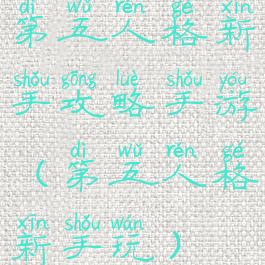 dì wǔ rén gé xīn
第五人格新
shǒu gōng lüè shǒu you
手攻略手游
dì wǔ rén gé
（第五人格
xīn shǒu wán
新手玩）